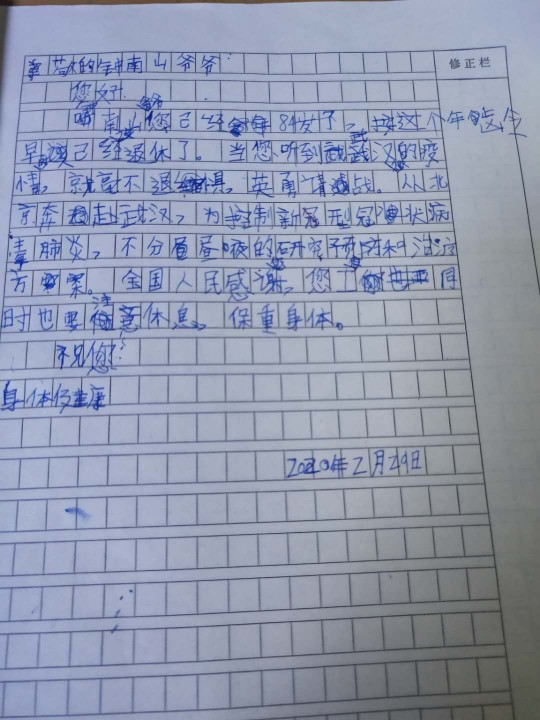 尊敬的钟南山爷爷:
修正栏
您好!
南山爷爷您已经84岁了,按这个年龄应
早该已经退休了。当您听到武汉的疫
情,就毫不退惧,英勇请战。从北
京奔赴武汉,为控制新冠型冠状病
毒肺炎,不分昼夜的研究预防和治疗
方案。全国人民感谢您,您工作同
时也要注意休息,保重身体。
祝您:
身体健康
2020年2月29日